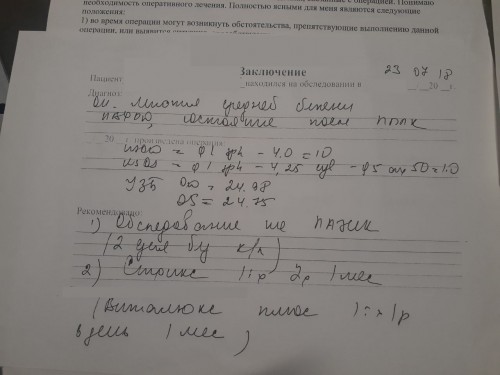 необходимость оперативного лечения. Полностью ясными для меня являются следующие
положения:
1) во время операции могут возникнуть обстоятельства, препятствующие выполнению данной
операции, или
Заключение 23 07 18
Пациент находился на обследовании в 20 г.
Диагноз:
OU. Миопия средней степени
состояние после ППЛК
20 г. произведена операция:
VisOD = 0,1 sph - 4,0 = 1,0
VisOS = 0,1 sph - 4,25 cyl - 0,5 ax 50 = 1,0
УЗБ OD = 24.98
OS = 24.75
Рекомендовано:
1) Обследование на ЛАЗИК
(2 дня без к/л)
2) Стрикс 1т x 2р 1 мес
(Виталюкс плюс 1т x 1р
в день 1 мес)